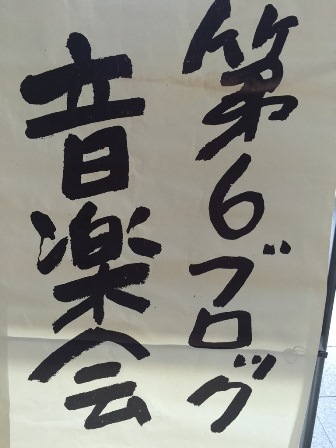 第6ブロック
音楽会